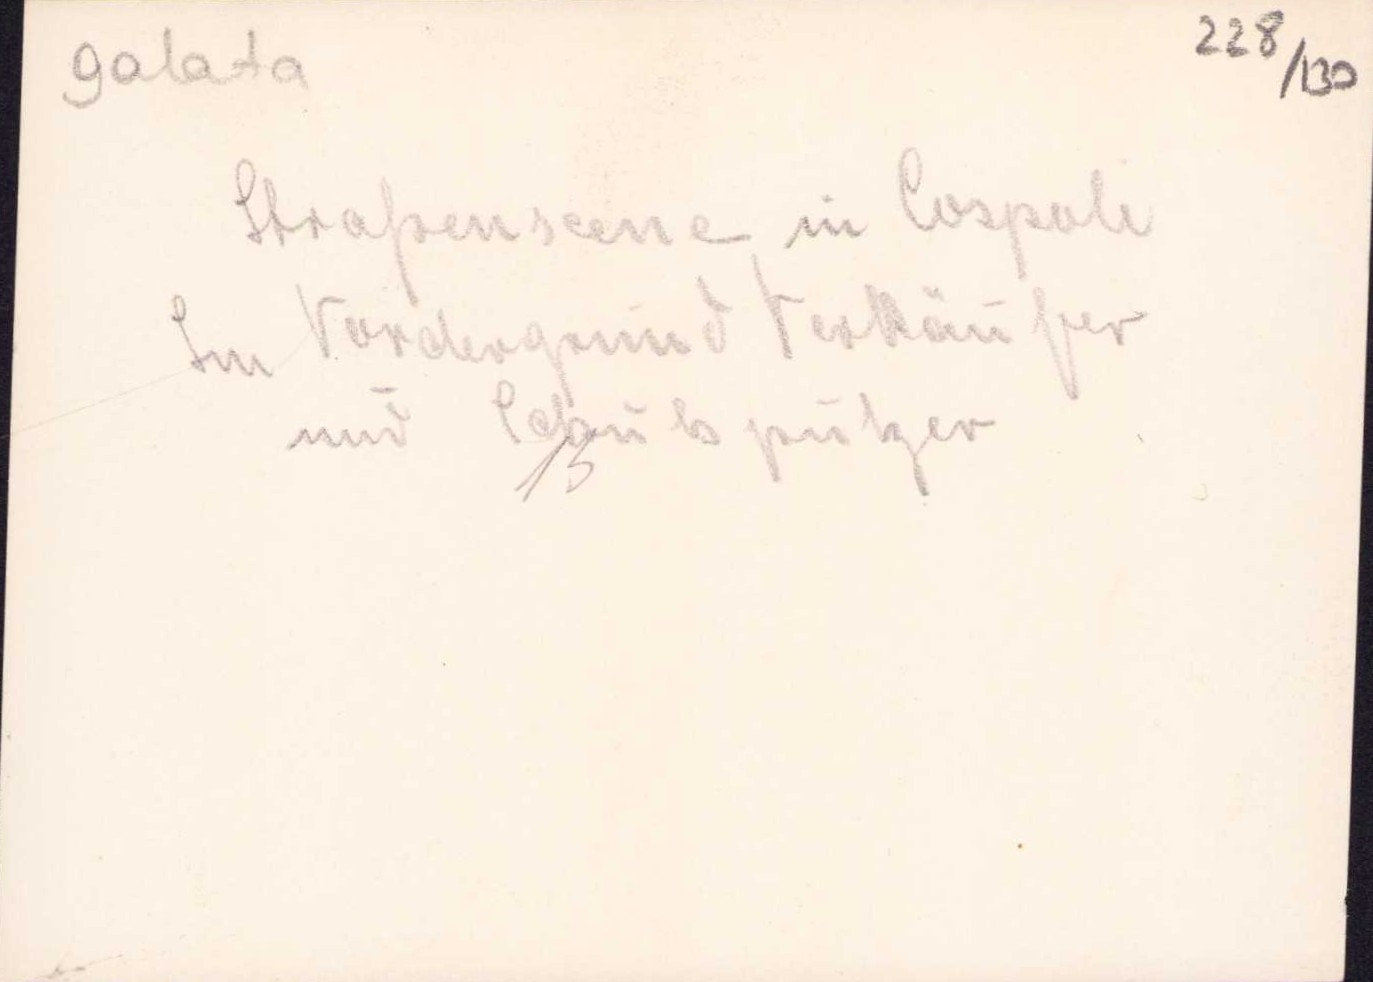 galata
228/130
Straßenscene in Cospoli
Im Vordergrund Verkäufer
und Schuhputzer
13